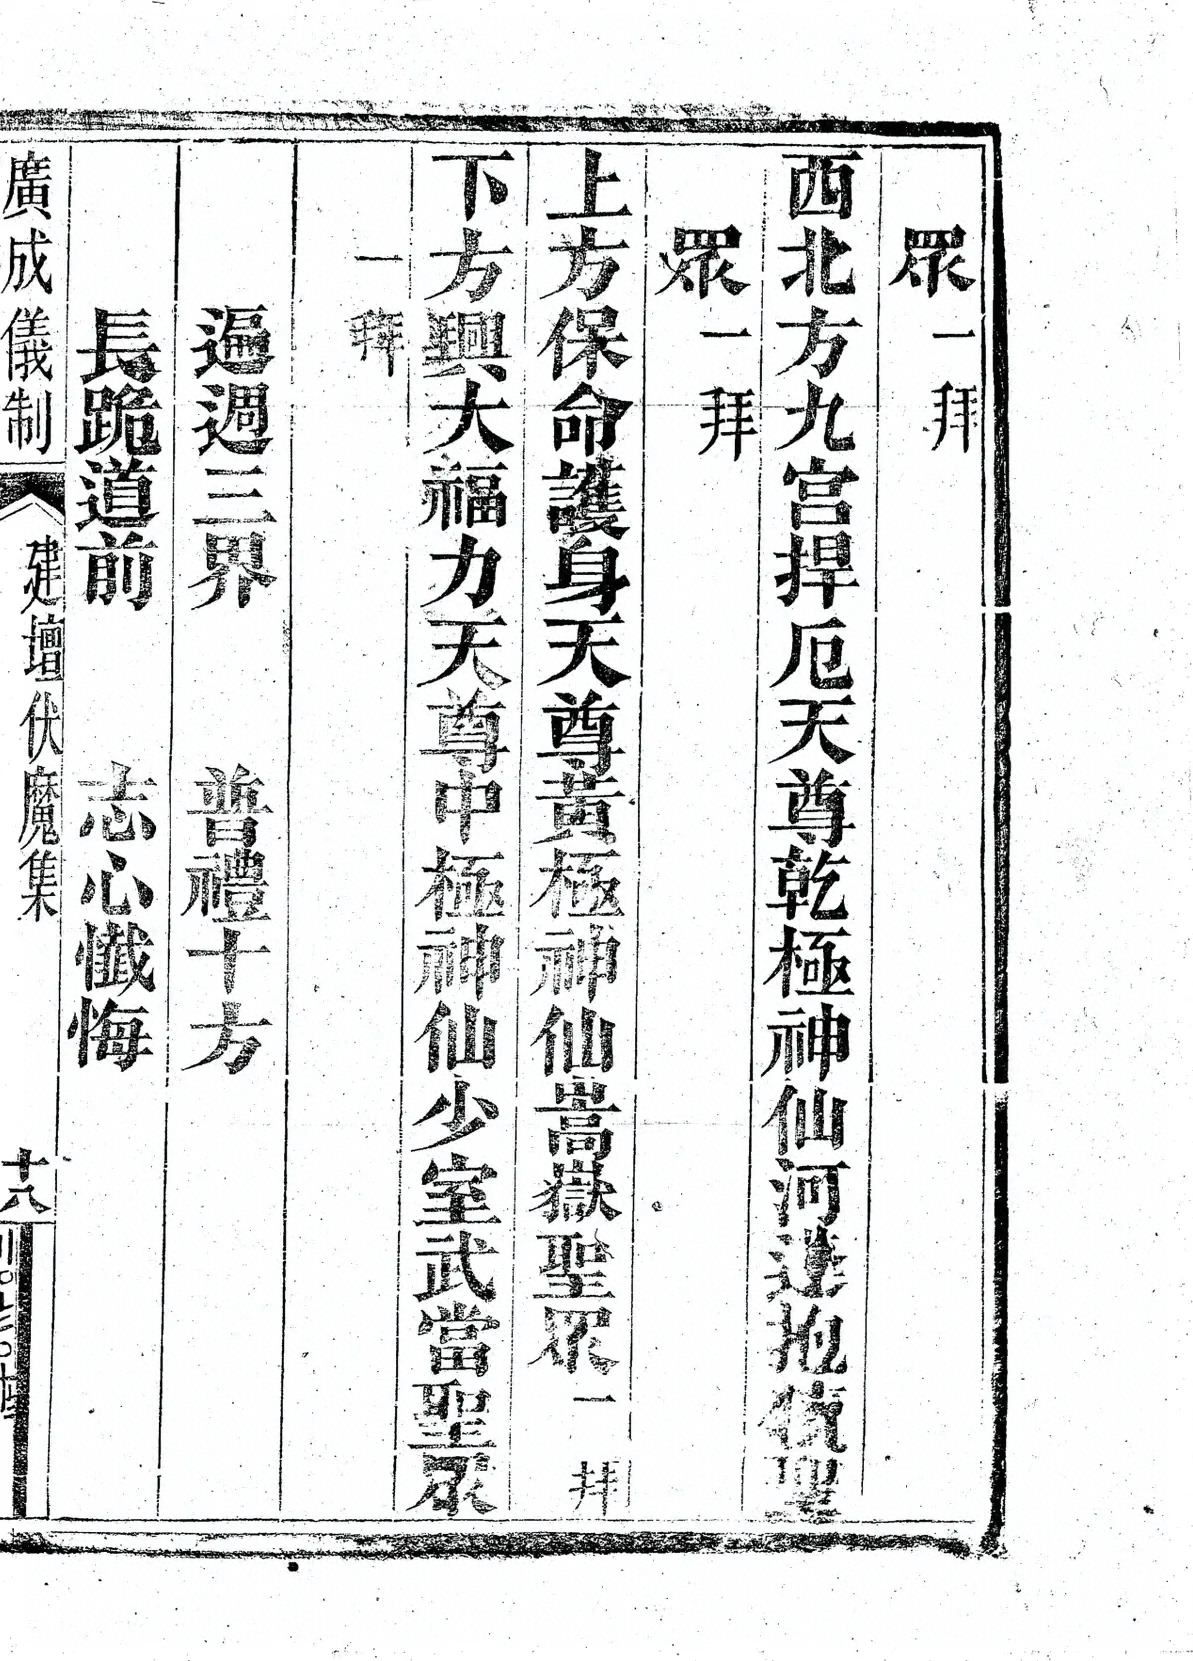 眾一拜
西北方九宫捍厄天尊乾極神仙河逵抱犢聖
眾一拜
上方保命護身天尊黃極神仙嵩嶽聖眾一拜
下方興大福力天尊中極神仙少室武當聖眾
一拜
遍週三界 普禮十方
長跪道前 志心懺悔
廣成儀制 建壇伏魔集 十八